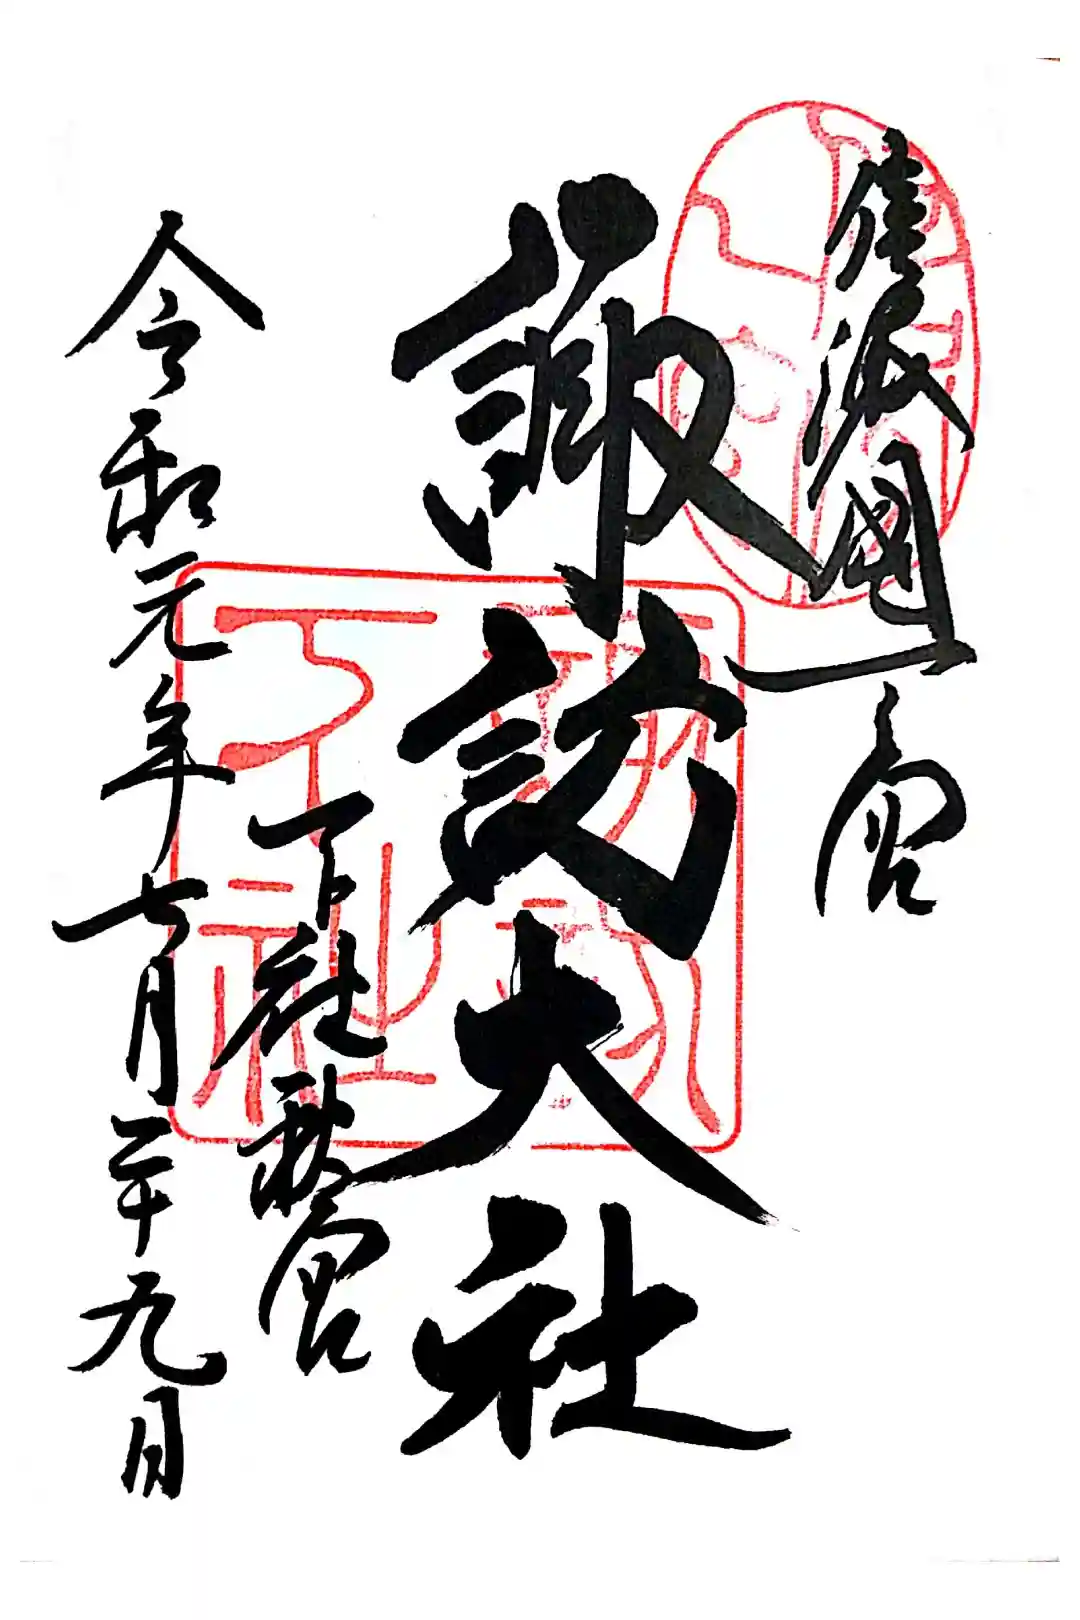 信濃國一宮
諏訪大社
下社秋宮
令和元年七月二十九日